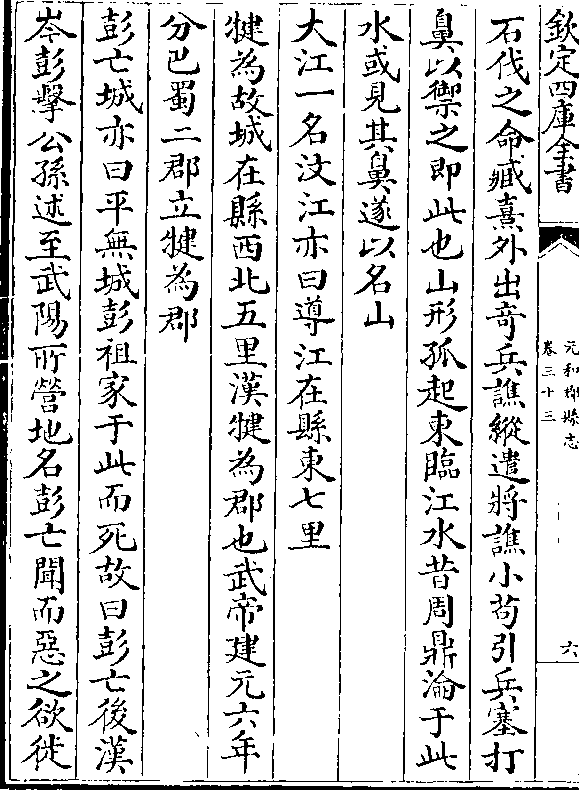 欽定四庫全書
元和郡縣志
卷三十三
六
石伐之命臧熹外出竒兵譙縱遣將譙小茍引兵塞打
鼻以禦之即此也山形孤起東臨江水昔周鼎淪于此
水或見其鼻遂以名山
大江一名汶江亦曰導江在縣東七里
犍為故城在縣西北五里漢犍為郡也武帝建元六年
分巴蜀二郡立犍為郡
彭亡城亦曰平無城彭祖家于此而死故曰彭亡後漢
岑彭擊公孫述至武陽所營地名彭亡聞而惡之欲徙